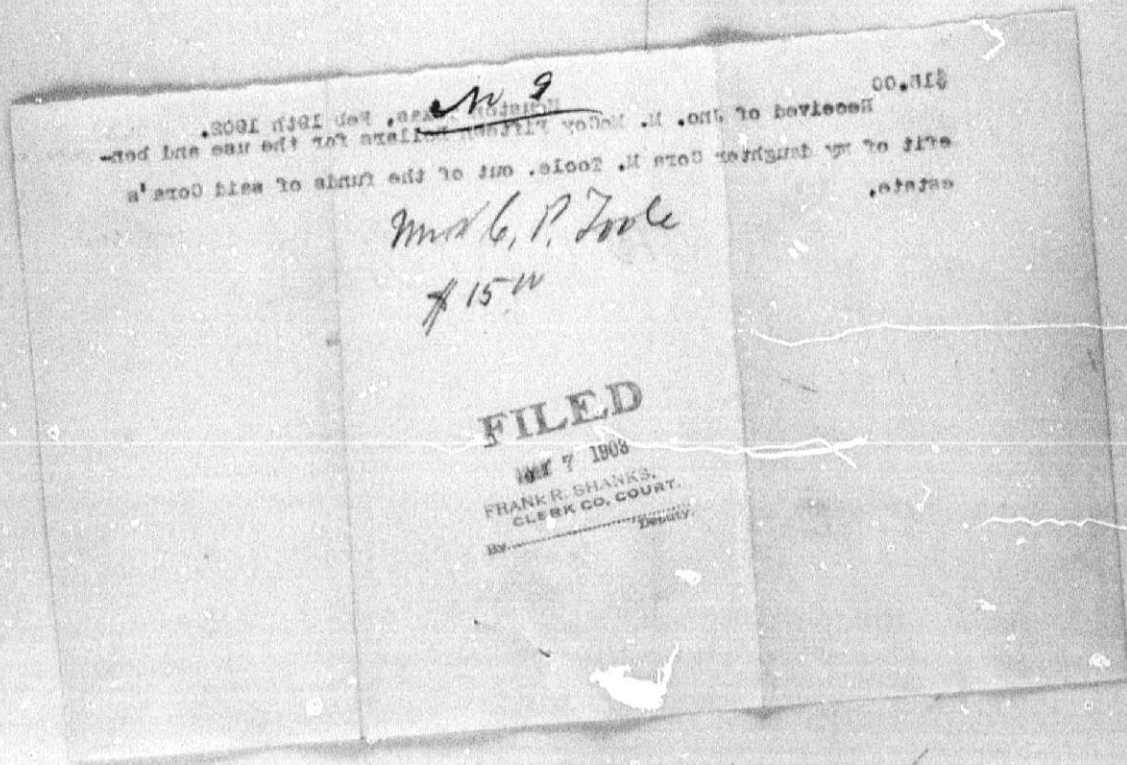 No 9
$15.00
Houston Texas, Feb 19th 1902.
Received of Jno. M. McCoy Fifteen Dollars for the use and ben-
efit of my daughter Cora M. Toole. out of the funds of said Cora's
estate.
Mrs C. P. Toole
$15.00
FILED
7 1903
FRANK R. SHANKS,
CLERK CO. COURT.
By Deputy.